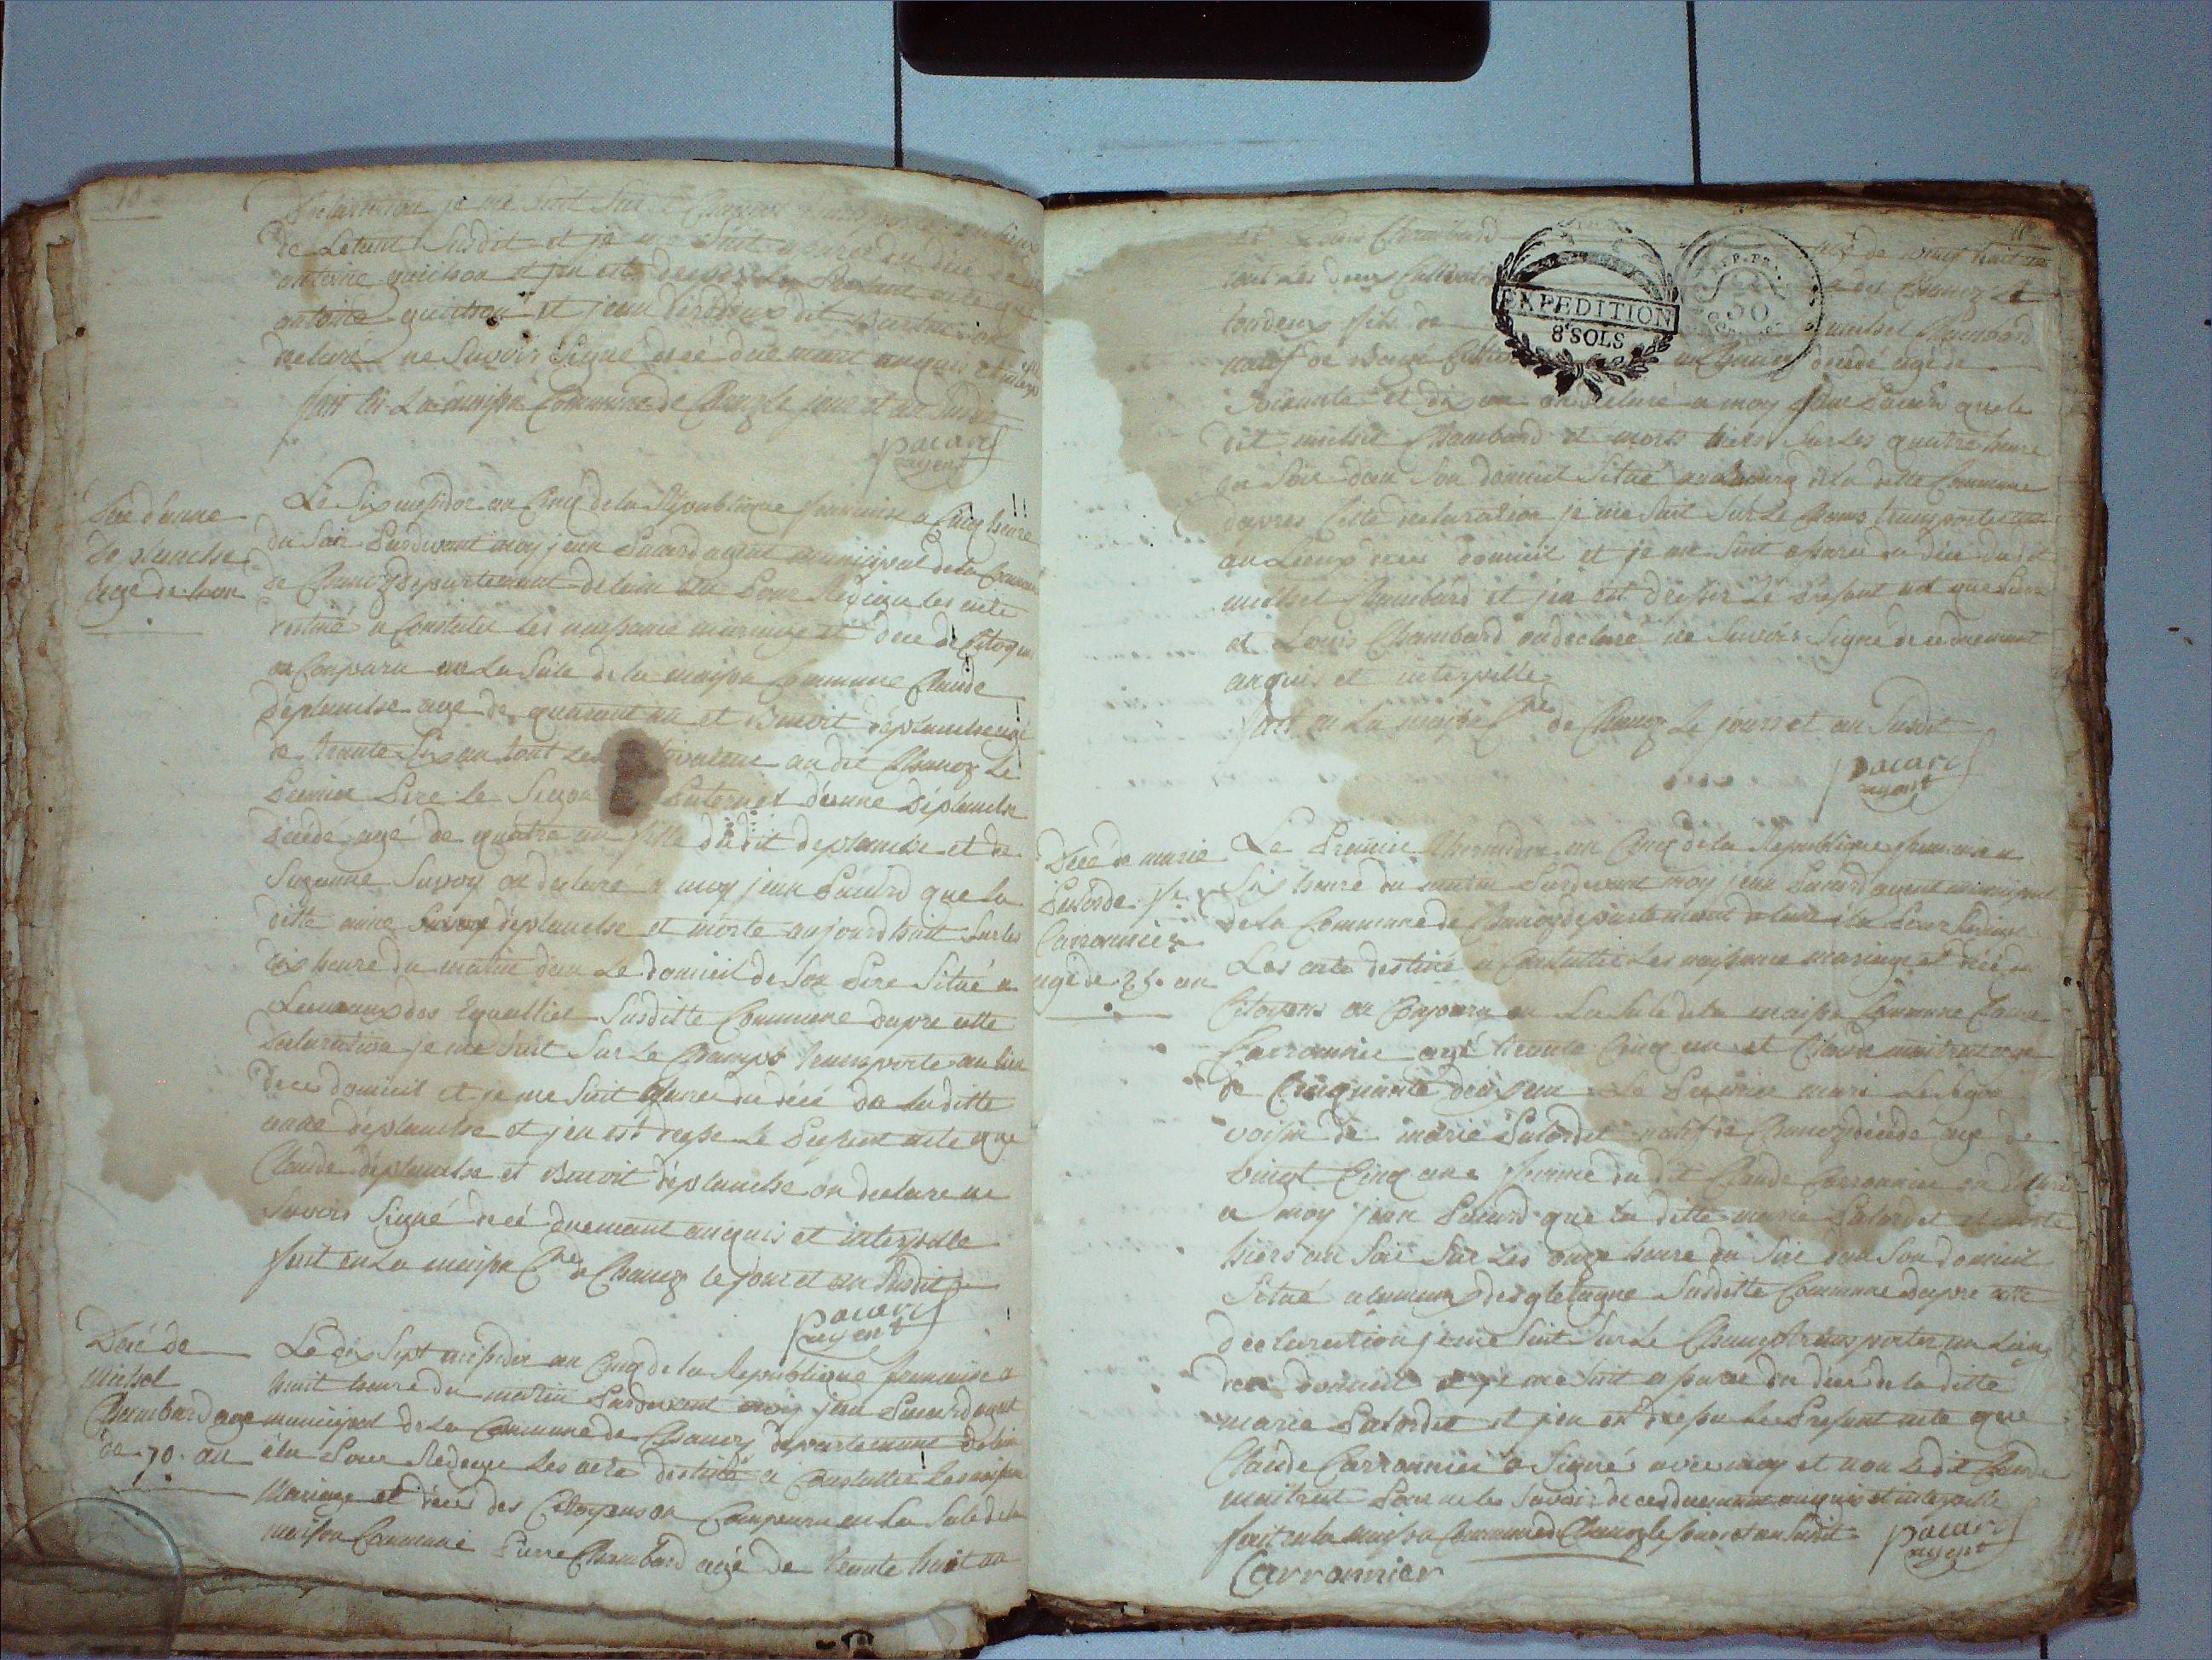 10
declaration je me suit sur le Champs
de Letant Susdit et je me suit
antoine guichon et jen est dresser le Present acte que
antoine guichon et jean
declaré ne Savoir Signé decé duement anquis et interpellé
fait en La maison Commune de Chanoz le jour et an Susdit
pacard
agent
Décé d'anne
déplanche
agé de 4 an
Le Six mesidor an Cinq de la Republique francaise a Cinq heure
du Soir Pardevant moy jean Pacard agent municipal de la Commune
de Chanoz departement de lain élu Pour Rediger les acte
destiné a Constater les naissance mariage et décé de Citoyens
on Comparu en La Sale de la maison Commune Claude
déplanche age de quarante an et Benoit déplanche agé
de trante Six an tout Les cultivateur au dit Chanoz Le
Premier Pere le Segon Paternel d'anne Déplanche
Décedé agé de quatre an fille du dit deplanche et de
Suzanne Savoy on declaré a moy jean Pacard que la
ditte anne déplanche et morte aujourdhuit Surles
dix heure du matin dans Le domicil de Son Pere Situé a
Susditte Commune dapre cette
declaration je me Suit Sur Le Champs transporte au lieu
de ce domicil et je me Suit aparu du décé de laditte
anne déplanche et jen est dressé Le Present acte que
Claude déplanche et Benoit déplanche on declare ne
Savoir Signé decé duement anquis et interpellé
fait en La maison Cne de Chanoz le jour et an Susdit
pacard
agent
Décé de
Michel
Chambard age
de 70 an
Le dix Sept mesidor an Cinq de la Republique francaise a
huit heure du matin Pardevant moy jean Pacard agent
municipal de La Commune de Chanoz departement de lain
élu Pour Rediger Les acte destiné a Constatter Les naissance
Mariage et décé des Citoyens on Comparu en La Sale de la
maison Commune Pierre Chambard agé de trante huit an
Chambard agé de vingt huit an
tout Les deux Cultivateur a dit Chanoz Le
tous deux fils de michel Chambard
natif de Cultivateur en Chanoz décedé agé de
Soixante et dix an on declaré a moy jean Pacard que le
dit michel Chambard et morts hiers Sur Les quatre heure
du Soir dans Son domicil Situé au Bourg de La ditte Commune
dapres Cette declaration je me Suit Sur Le Champs transporter
au Lieux de ce domicil et je me Suit aparu du décé dudit
michel Chambard et jen est dresser Le Present act que Pierre
et Louis Chambard on declaré ne Savoir Signé de ce duement
anquis et interpellé
fait en La maison Cne de Chanoz Le jours et an Susdit
pacard
agent
EXPEDITION
8 SOLS
50
Décé de marie
Palordet fe
Carronnier
agé de 25 an
Le Premier Thermidor an Cinq de la Republique francaise a
Six heure du matin Pardevant moy jean Pacard agent municipal
de La Commune de Chanoz departement de lain élu Pour Rediger
Les acte destiné a Constatter Les naissance mariage et décé de
Citoyens on Comparu en La Sale de la maison Commune Claude
Carronnier agé trante Cinq an et Claude maitret age
de Cinquante deux an Le Premier mari Le Segon
voisin de marie Palordet natif de Chanoz décedé age de
vingt Cinq ans femme du dit Claude Carronnier on declaré
a moy jean Pacard que la ditte marie Palordet et morte
hiers au Soir Sur Les onze heure du Soir dans Son domicil
Situé Susditte Commune dapre cette
declaration je me Suit Sur Le Champ transporter au Lieu
de ce domicil et je me Suit aparu du décé de la ditte
marie Palordet et jen est dressé Le Present acte que
Claude Carronnier a Signé avec moy et non Ledit Claude
maitret Pour ne les Savoir de ce duement anquis et interpellé
fait en la maison Commune de Chanoz le jour et an Susdit
pacard
agent
Carronnier